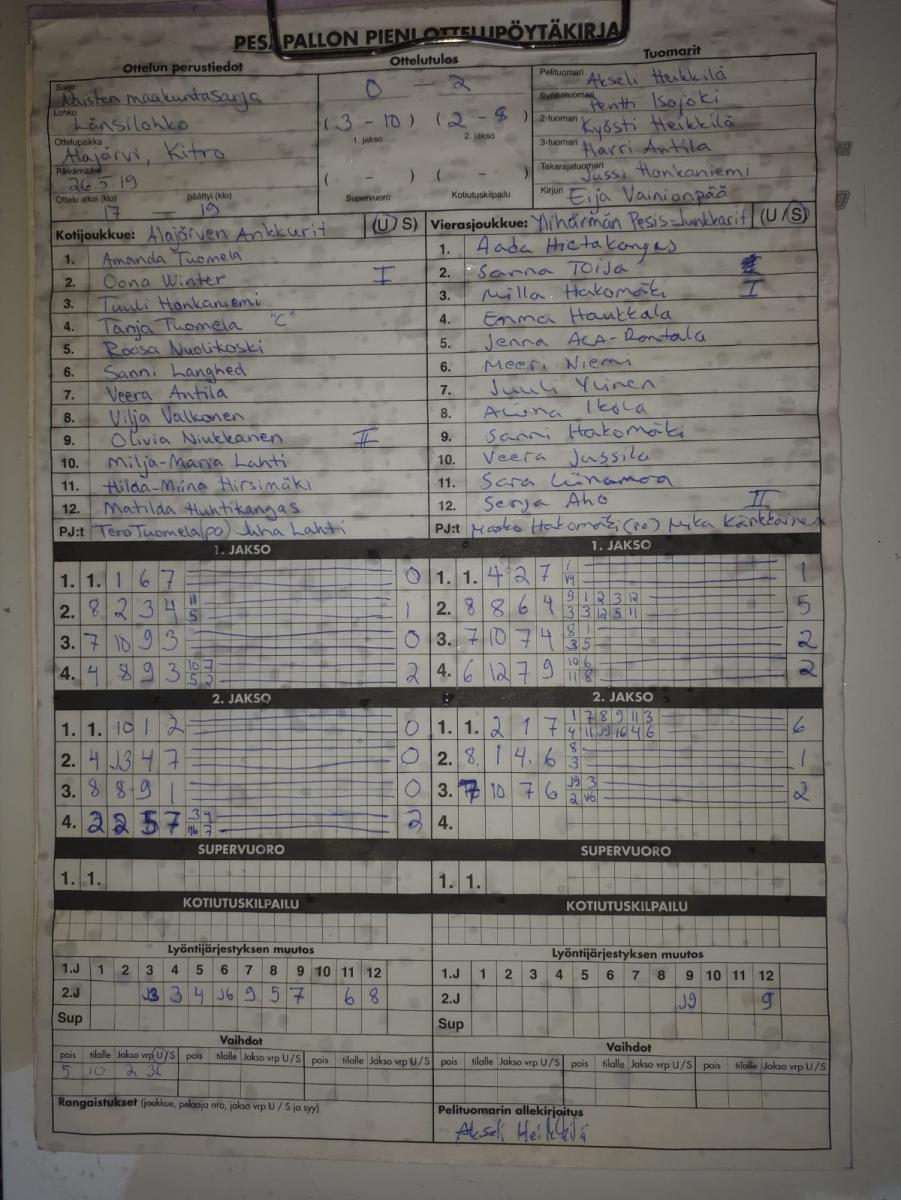 PESÄPALLON PIENI OTTELUPÖYTÄKIRJA
Ottelun perustiedot
Ottelutulos
Tuomarit
Sarja Naisten maakuntasarja
Lohko Länsilohko
Ottelupaikka Alajärvi, Kitro
Päivämäärä 26.5.19
Ottelu alkoi (klo) päättyi (klo)
17 — 19
0 – 2
(3 – 10) (2 – 8)
1. jakso 2. jakso
( – ) ( – )
Supervuoro Kotiutuskilpailu
Pelituomari Akseli Heikkilä
Syöttötuomari Pentti Isojoki
2-tuomari Kyösti Heikkilä
3-tuomari Harri Antila
Takarajatuomari Jussi Honkaniemi
Kirjuri Eija Vainionpää
Kotijoukkue: Alajärven Ankkurit (U/S)
1. Amanda Tuomela
2. Oona Winter I
3. Tuuli Honkaniemi
4. Tanja Tuomela "C"
5. Roosa Nuolikoski
6. Sanni Langhed
7. Veera Antila
8. Vilja Valkonen
9. Olivia Niukkanen II
10. Milja-Maria Lahti
11. Hilda-Miina Hirsimäki
12. Matilda Huhtikangas
PJ:t Tero Tuomela (PO) Juha Lahti
Vierasjoukkue: Ylihärmän Pesis-Junkkarit (U/S)
1. Aada Hietakangas
2. Sanna Toija
3. Milla Hakomäki I
4. Emma Haukkala
5. Jenna Ala-Rantala
6. Meeri Niemi
7. Juuli Ylinen
8. Ikola
9. Sanni Hakomäki
10. Veera Jussila
11. Sara Liinamaa
12. Senja Aho II
PJ:t Hakomäki (PO) Mika Kärkkäinen
1. JAKSO
1. 1. 1 6 7 0
2. 8 2 3 4 11 5 1
3. 7 10 9 3 0
4. 4 8 9 3 10 7 5 2 2
1. JAKSO
1. 1. 4 2 7 1
2. 8 8 6 4 9 1 2 3 12 3 3 12 5 11 5
3. 7 10 7 4 8 1 3 5 2
4. 6 12 7 9 10 6 11 8 2
2. JAKSO
1. 1. 10 1 2 0
2. 4 J3 4 7 0
3. 8 8 9 1 0
4. 2 2 5 7 3 4 7 2
2. JAKSO
1. 1. 2 1 7 1 7 8 9 11 3 4 11 J9 10 4 6 6
2. 8 1 4 6 8 3 1
3. 7 10 7 6 J9 3 2 2
4.
SUPERVUORO
1. 1.
SUPERVUORO
1. 1.
KOTIUTUSKILPAILU
KOTIUTUSKILPAILU
Lyöntijärjestyksen muutos
1.J 1 2 3 4 5 6 7 8 9 10 11 12
2.J J3 3 4 J6 9 5 7 6 8
Sup
Lyöntijärjestyksen muutos
1.J 1 2 3 4 5 6 7 8 9 10 11 12
2.J J9 9
Sup
Vaihdot
pois tilalle Jakso vrp U/S pois tilalle Jakso vrp U/S pois tilalle Jakso vrp U/S
5 10 2
Vaihdot
pois tilalle Jakso vrp U/S pois tilalle Jakso vrp U/S pois tilalle Jakso vrp U/S
Rangaistukset (joukkue, pelaaja nro, jakso vrp U / S ja syy)
Pelituomarin allekirjoitus
Akseli Heikkilä